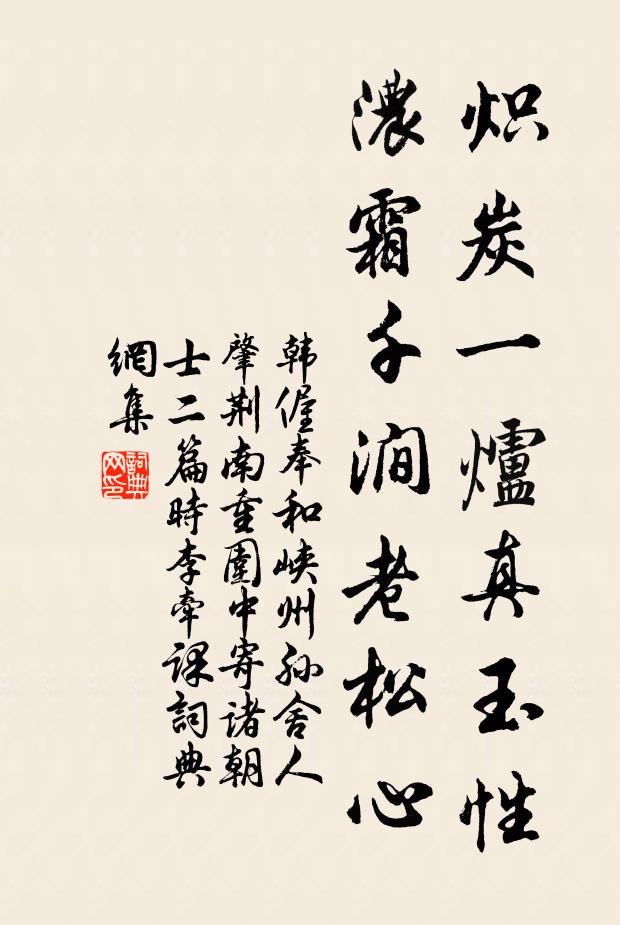 炽炭一爐真玉性
濃霜千澗老松心
韩偓奉和峡州孙舍人
肇荆南重圍中寄诸朝
士二篇時李牵课詞典
網集
詞典
网印